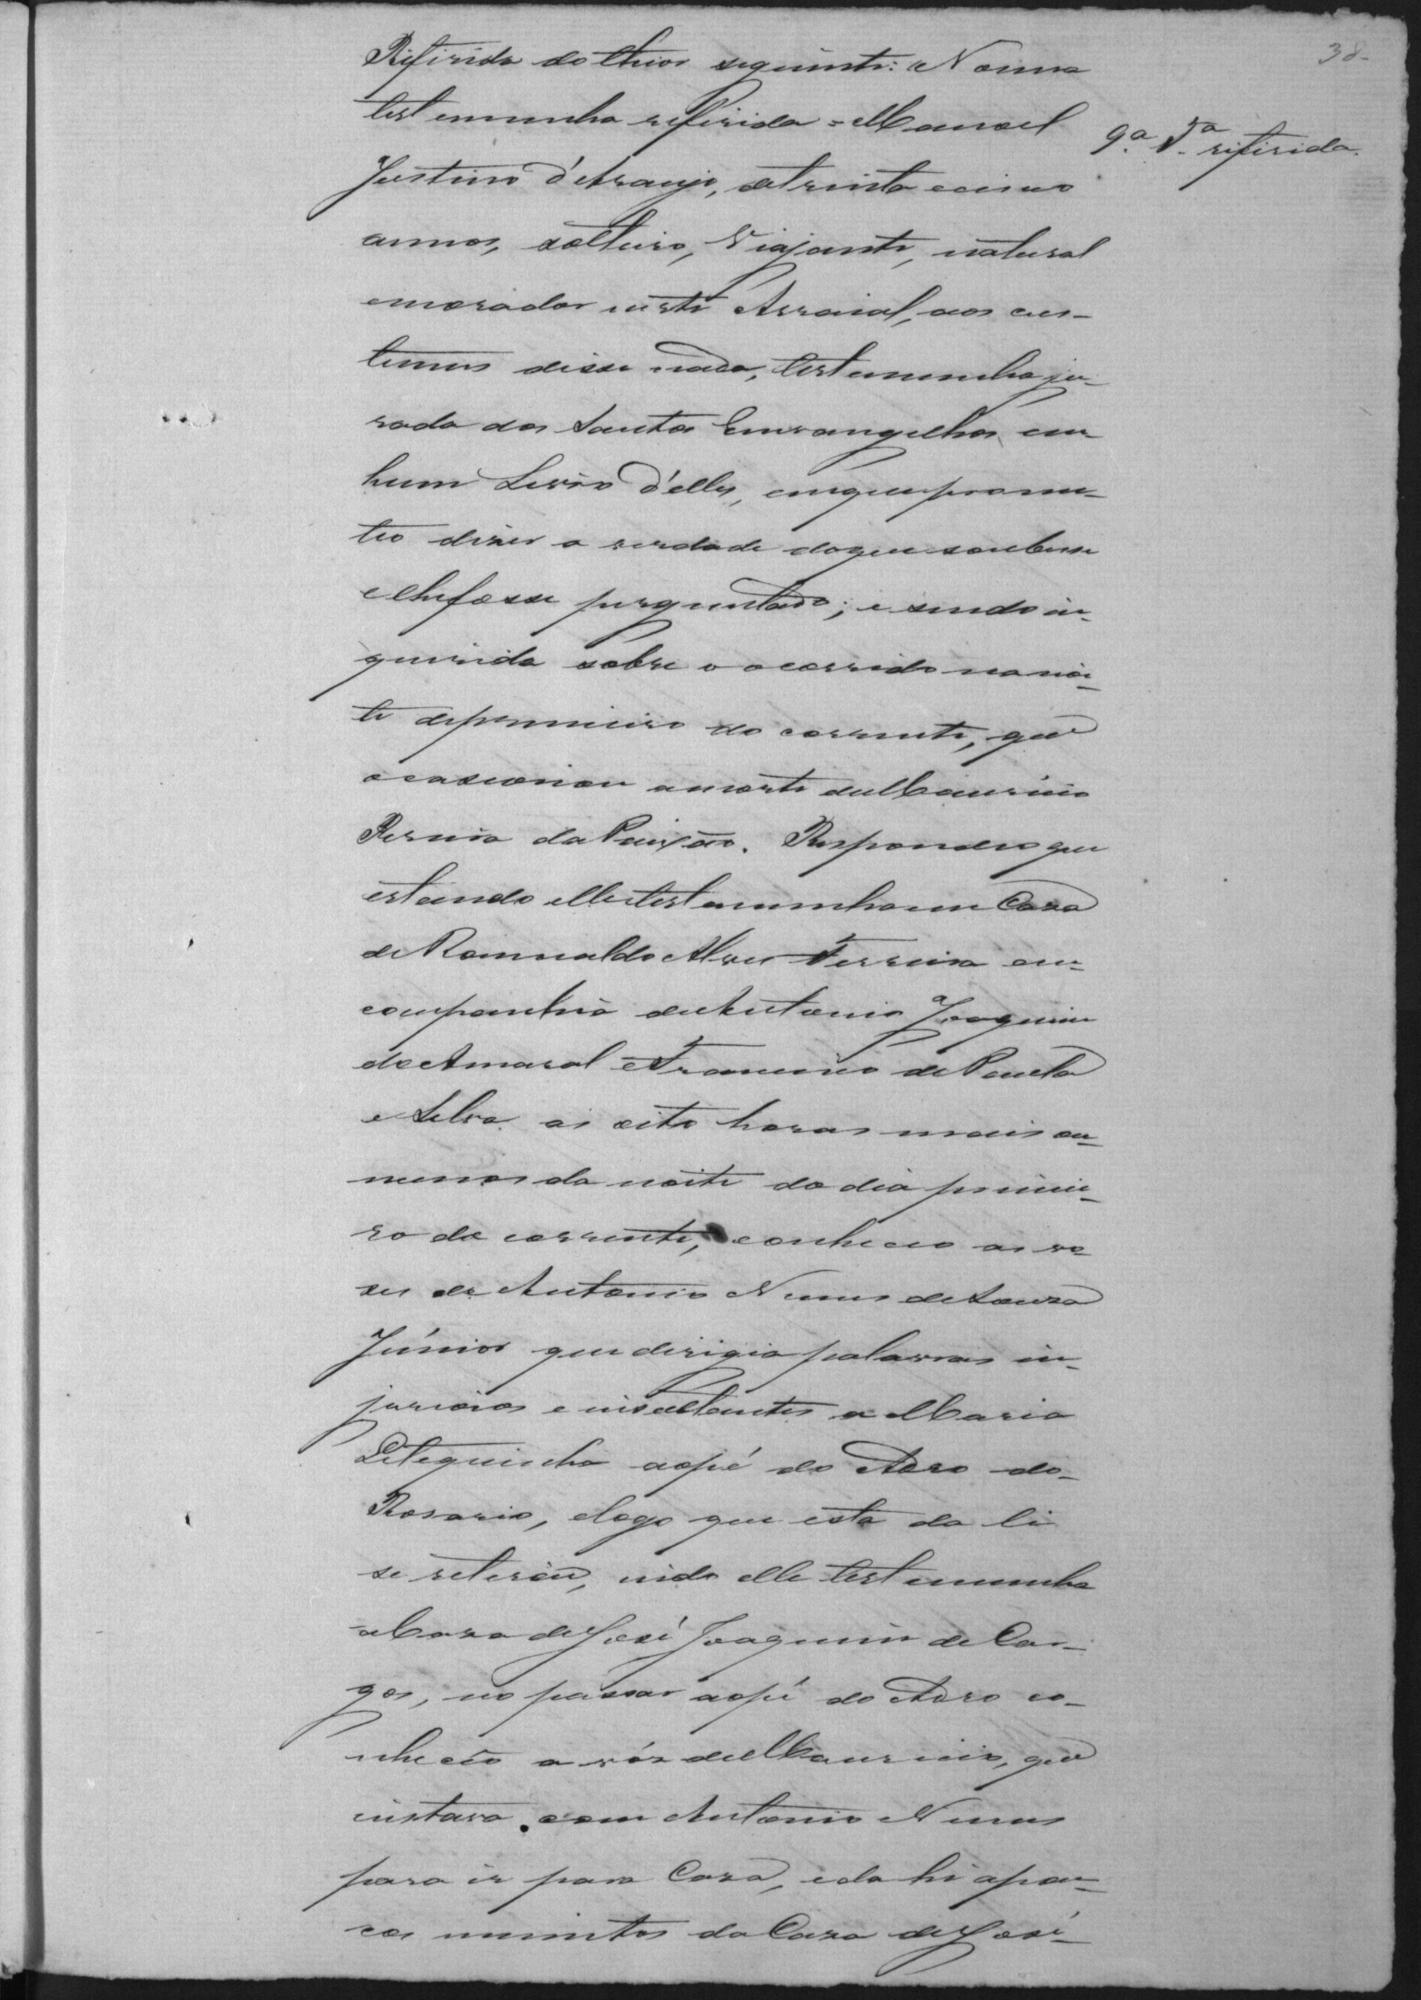 38
Referida do theor seguinte: Nona
testemunha referida = Manoel
9.ª T.ª referida.
Justino d'Araujo, de trinta e cinco
annos, solteiro, Viajante, natural
e morador neste Arraial, aos cus-
tumes disse nada, testemunha ju-
rada aos Santos Envangelhos em
hum Livro d'elles, em que prome-
teo dizer a verdade do que soubesse
e lhe fosse perguntado; e sendo in-
quirida sobre o ocorrido na noi-
te de primeiro do corrente, que
ocasionou a morte de Mauricio
Pereira da Paixão. Respondeo que
estando elle testemunha em Caza
de Romualdo Alves Ferreira em
companhia de Antonio Joaquim
do Amaral e Francisco de Paula
e Silva as oito horas mais ou
menos da noite do dia primei-
ro do corrente, conheceo as vo-
zes de Antonio Nunes de Souza
Júnior que dirigia palavras in-
juriosas e insultantes a Maria
Petequinha ao pé do Adro do
Rosario, e logo que esta da li
se retirou, indo elle testemunha
a Caza de José Joaquim de
gos, no passar ao pé do Adro co-
nheceo a vóz de Mauricio, que
instava com Antonio Nunes
para ir para Caza, e da hi a pou-
cos minutos da Caza de José